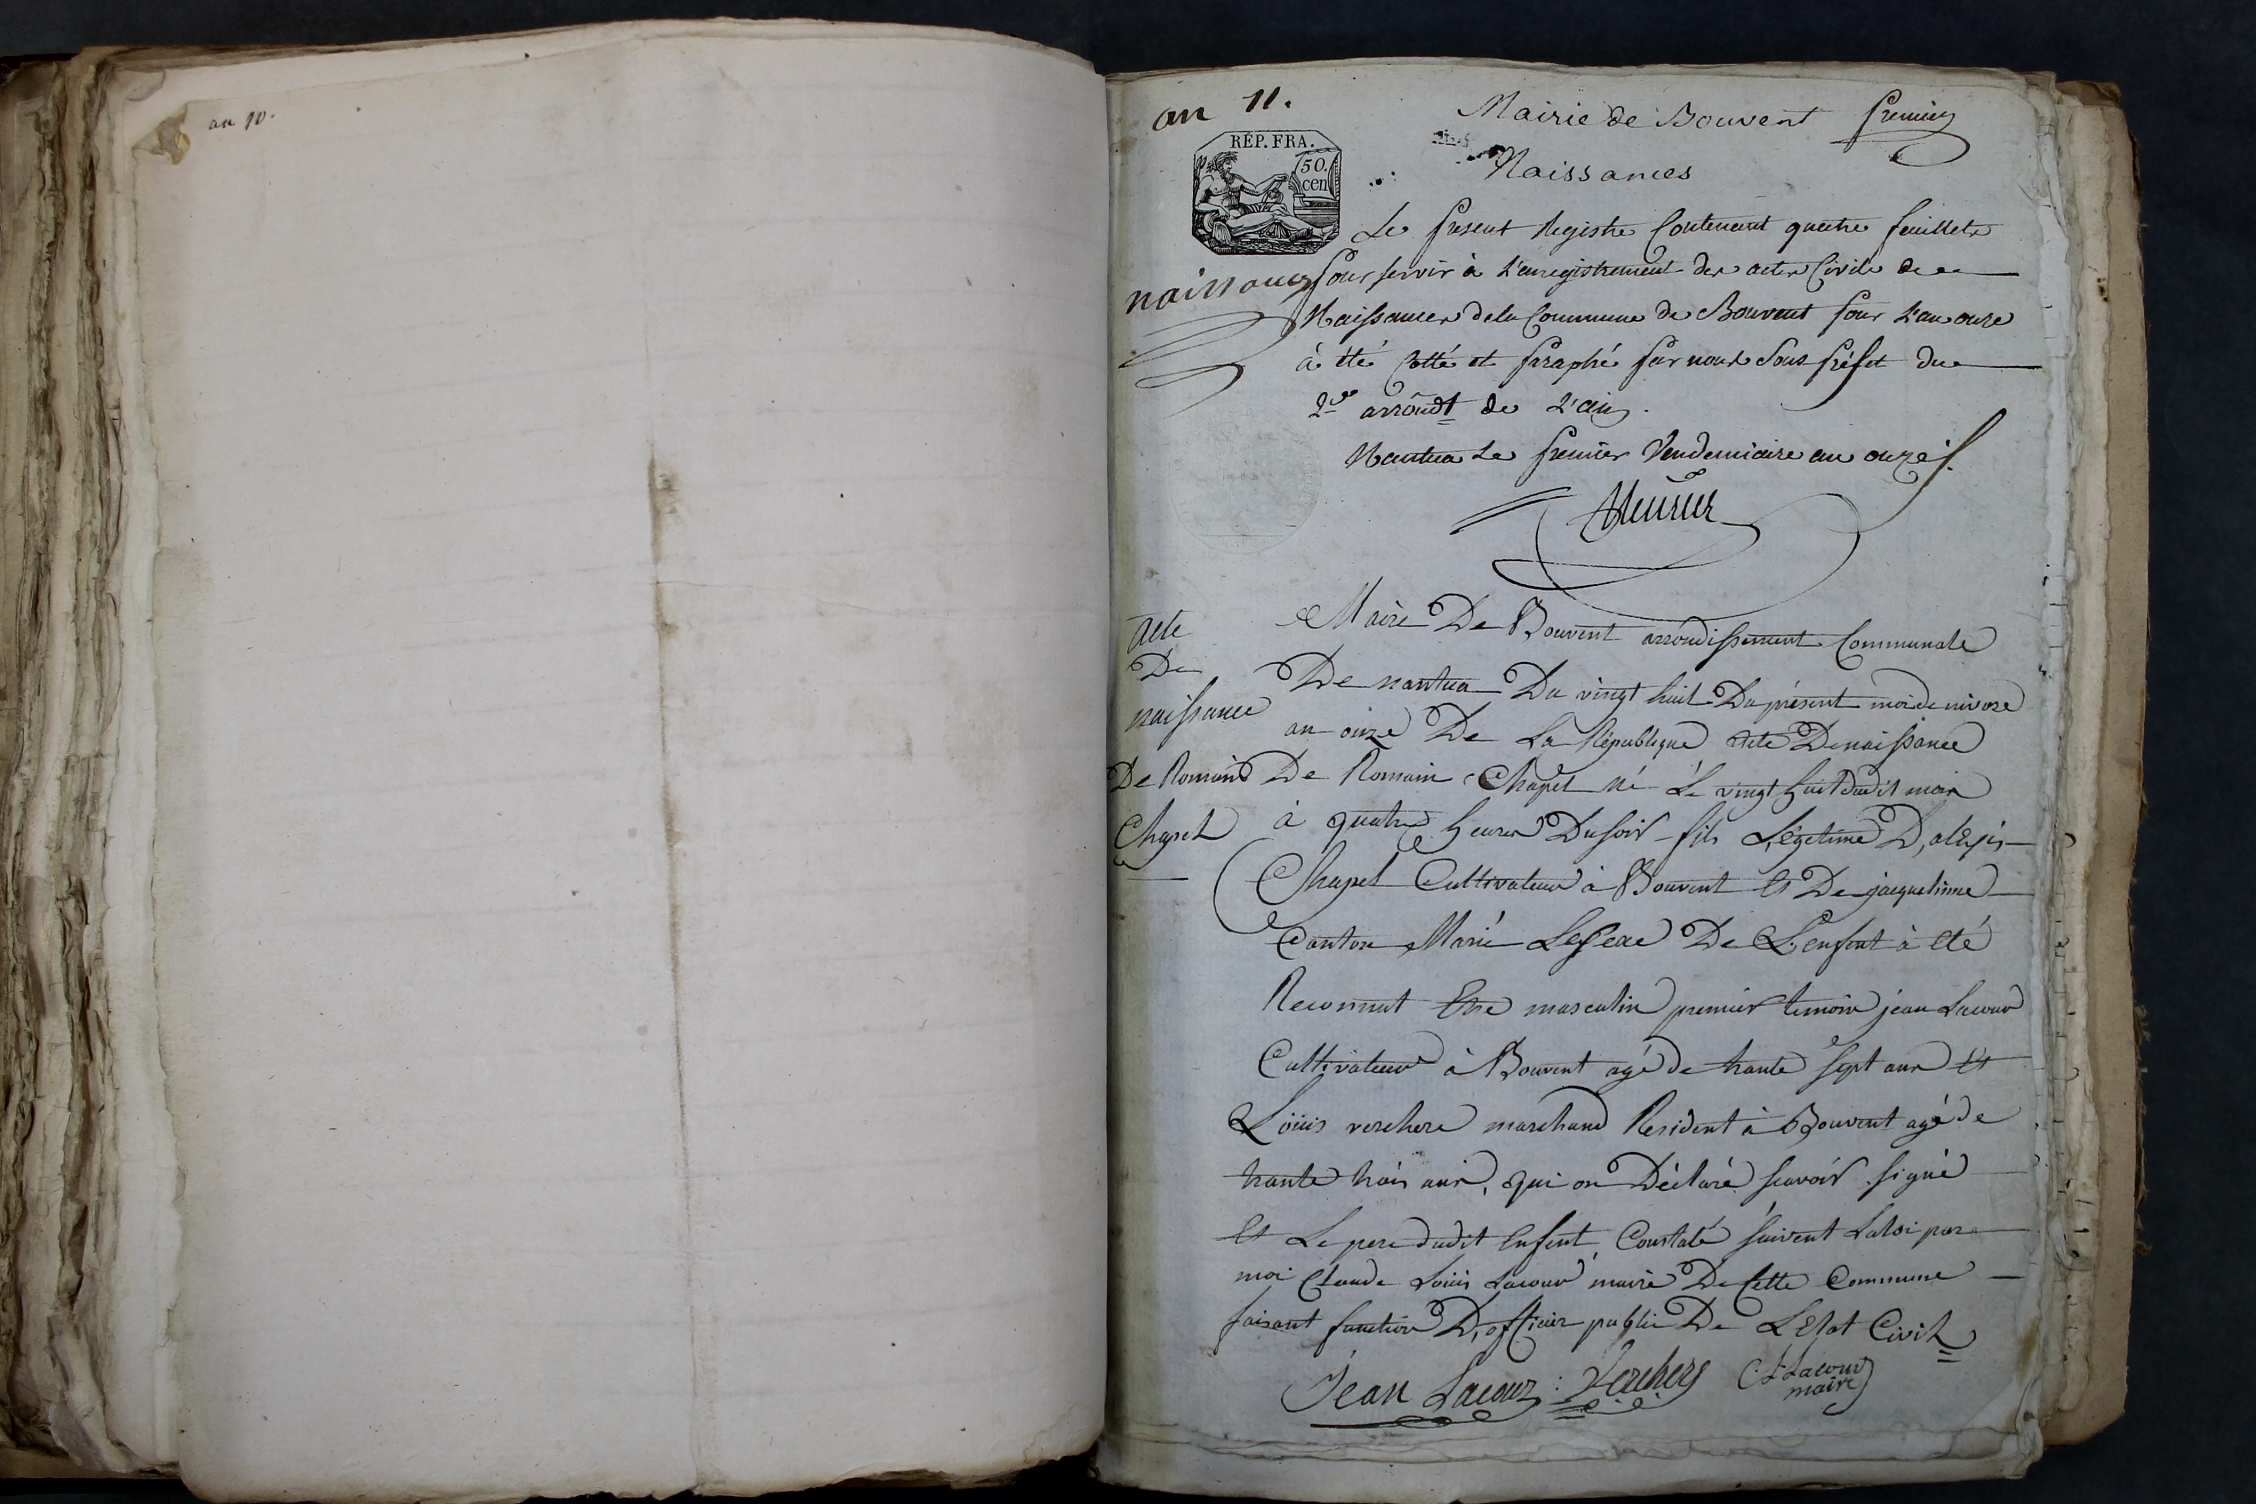 an 10.
an 11.
Mairie de Bouvent premier
RÉP. FRA.
50.
cen
Naissances
Le present Registre Contenant quatre feuillets
naissances
pour servir à l'enregistrement des actes Civils de
Naissances de la Commune de Bouvent pour l'an onze
à été Cotté et paraphé par nous Sous préfet du
2e arrondt de l'ain.
Nantua le premier Vendemiaire an onze
Mairie De Bouvent arrondissement Communale
De nantua Du vingt huit Du présent moi de nivose
an onze De La République acte De naissance
De Romain Chapel né Le vingt huit dudit mois
à quatre heures Du soir fils Légetime D'alexis
Chapel Cultivateur à Bouvent et De jacquelinne
Canton Marié Le sexe De L'enfent à été
Reconnut Etre masculin premier temoin jean Lacour
Cultivateur à Bouvent agé de trante sept ans et
Louis verchere marchand Resident à Bouvent agé de
trante trois ans, qui on Déclaré scavoir signé
et Le pere dudit Enfent, Constaté suivent La loi par
moi Claude Louis Lacour maire De Cette Commune
faisant function D'officier public De L'Etat Civil
acte
De
naissance
De Romain
Chapel
Jean Lacour
Verchere
C. L. Lacour
maire